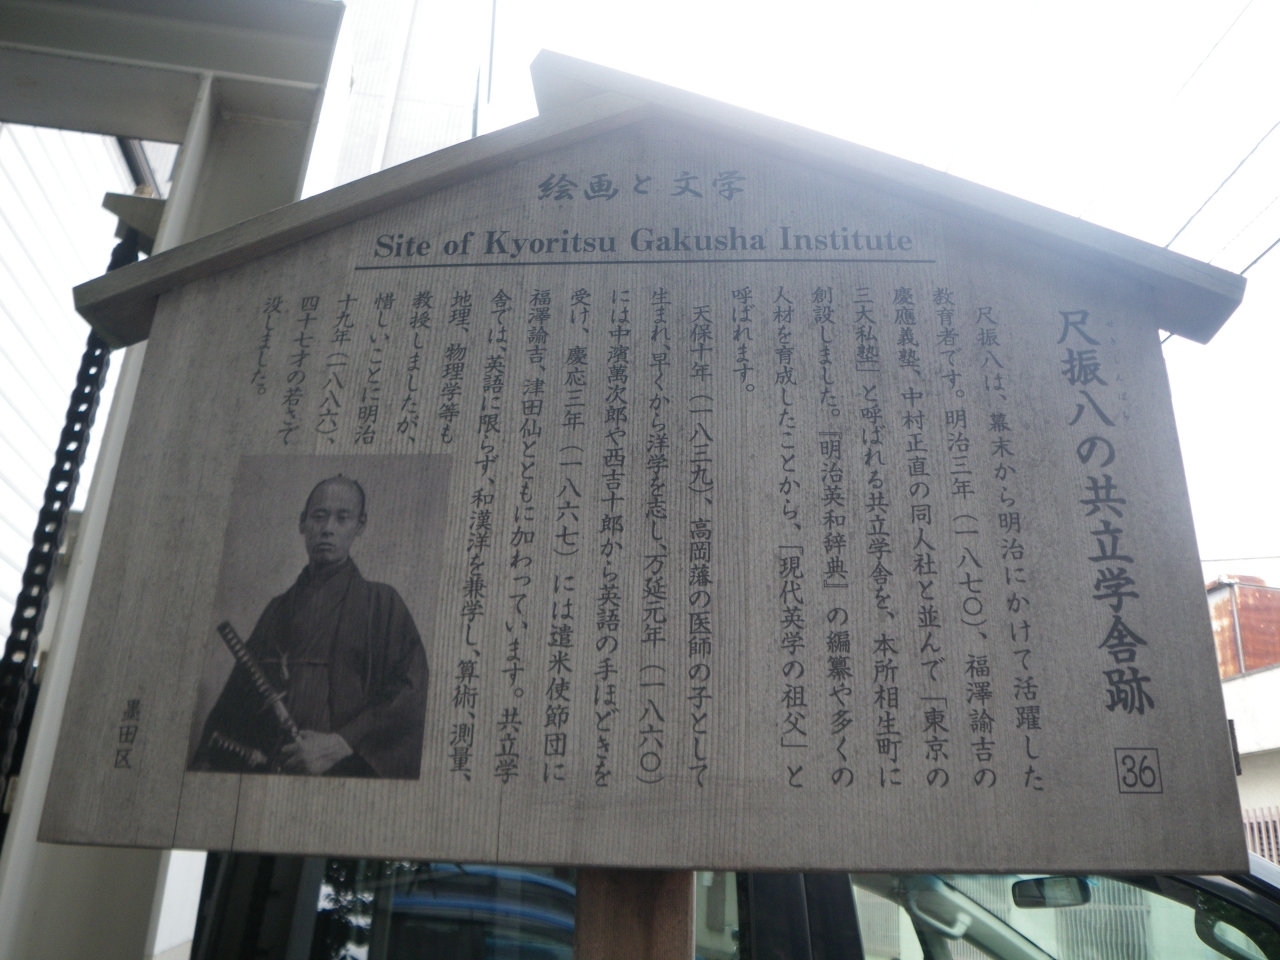 絵画と文学
Site of Kyoritsu Gakusha Institute
尺振八の共立学舎跡
36
尺振八は、幕末から明治にかけて活躍した
教育者です。明治三年（一八七〇）、福澤諭吉の
慶應義塾、中村正直の同人社と並んで「東京の
三大私塾」と呼ばれる共立学舎を、本所相生町に
創設しました。『明治英和辞典』の編纂や多くの
人材を育成したことから、「現代英学の祖父」と
呼ばれます。
天保十年（一八三九）、高岡藩の医師の子として
生まれ、早くから洋学を志し、万延元年（一八六〇）
には中濱萬次郎や西吉十郎から英語の手ほどきを
受け、慶応三年（一八六七）には遣米使節団に
福澤諭吉、津田仙とともに加わっています。共立学
舎では、英語に限らず、和漢洋を兼学し、算術、測量、
地理、物理学等も
教授しましたが、
惜しいことに明治
十九年（一八八六）、
四十七才の若さで
没しました。
墨田区